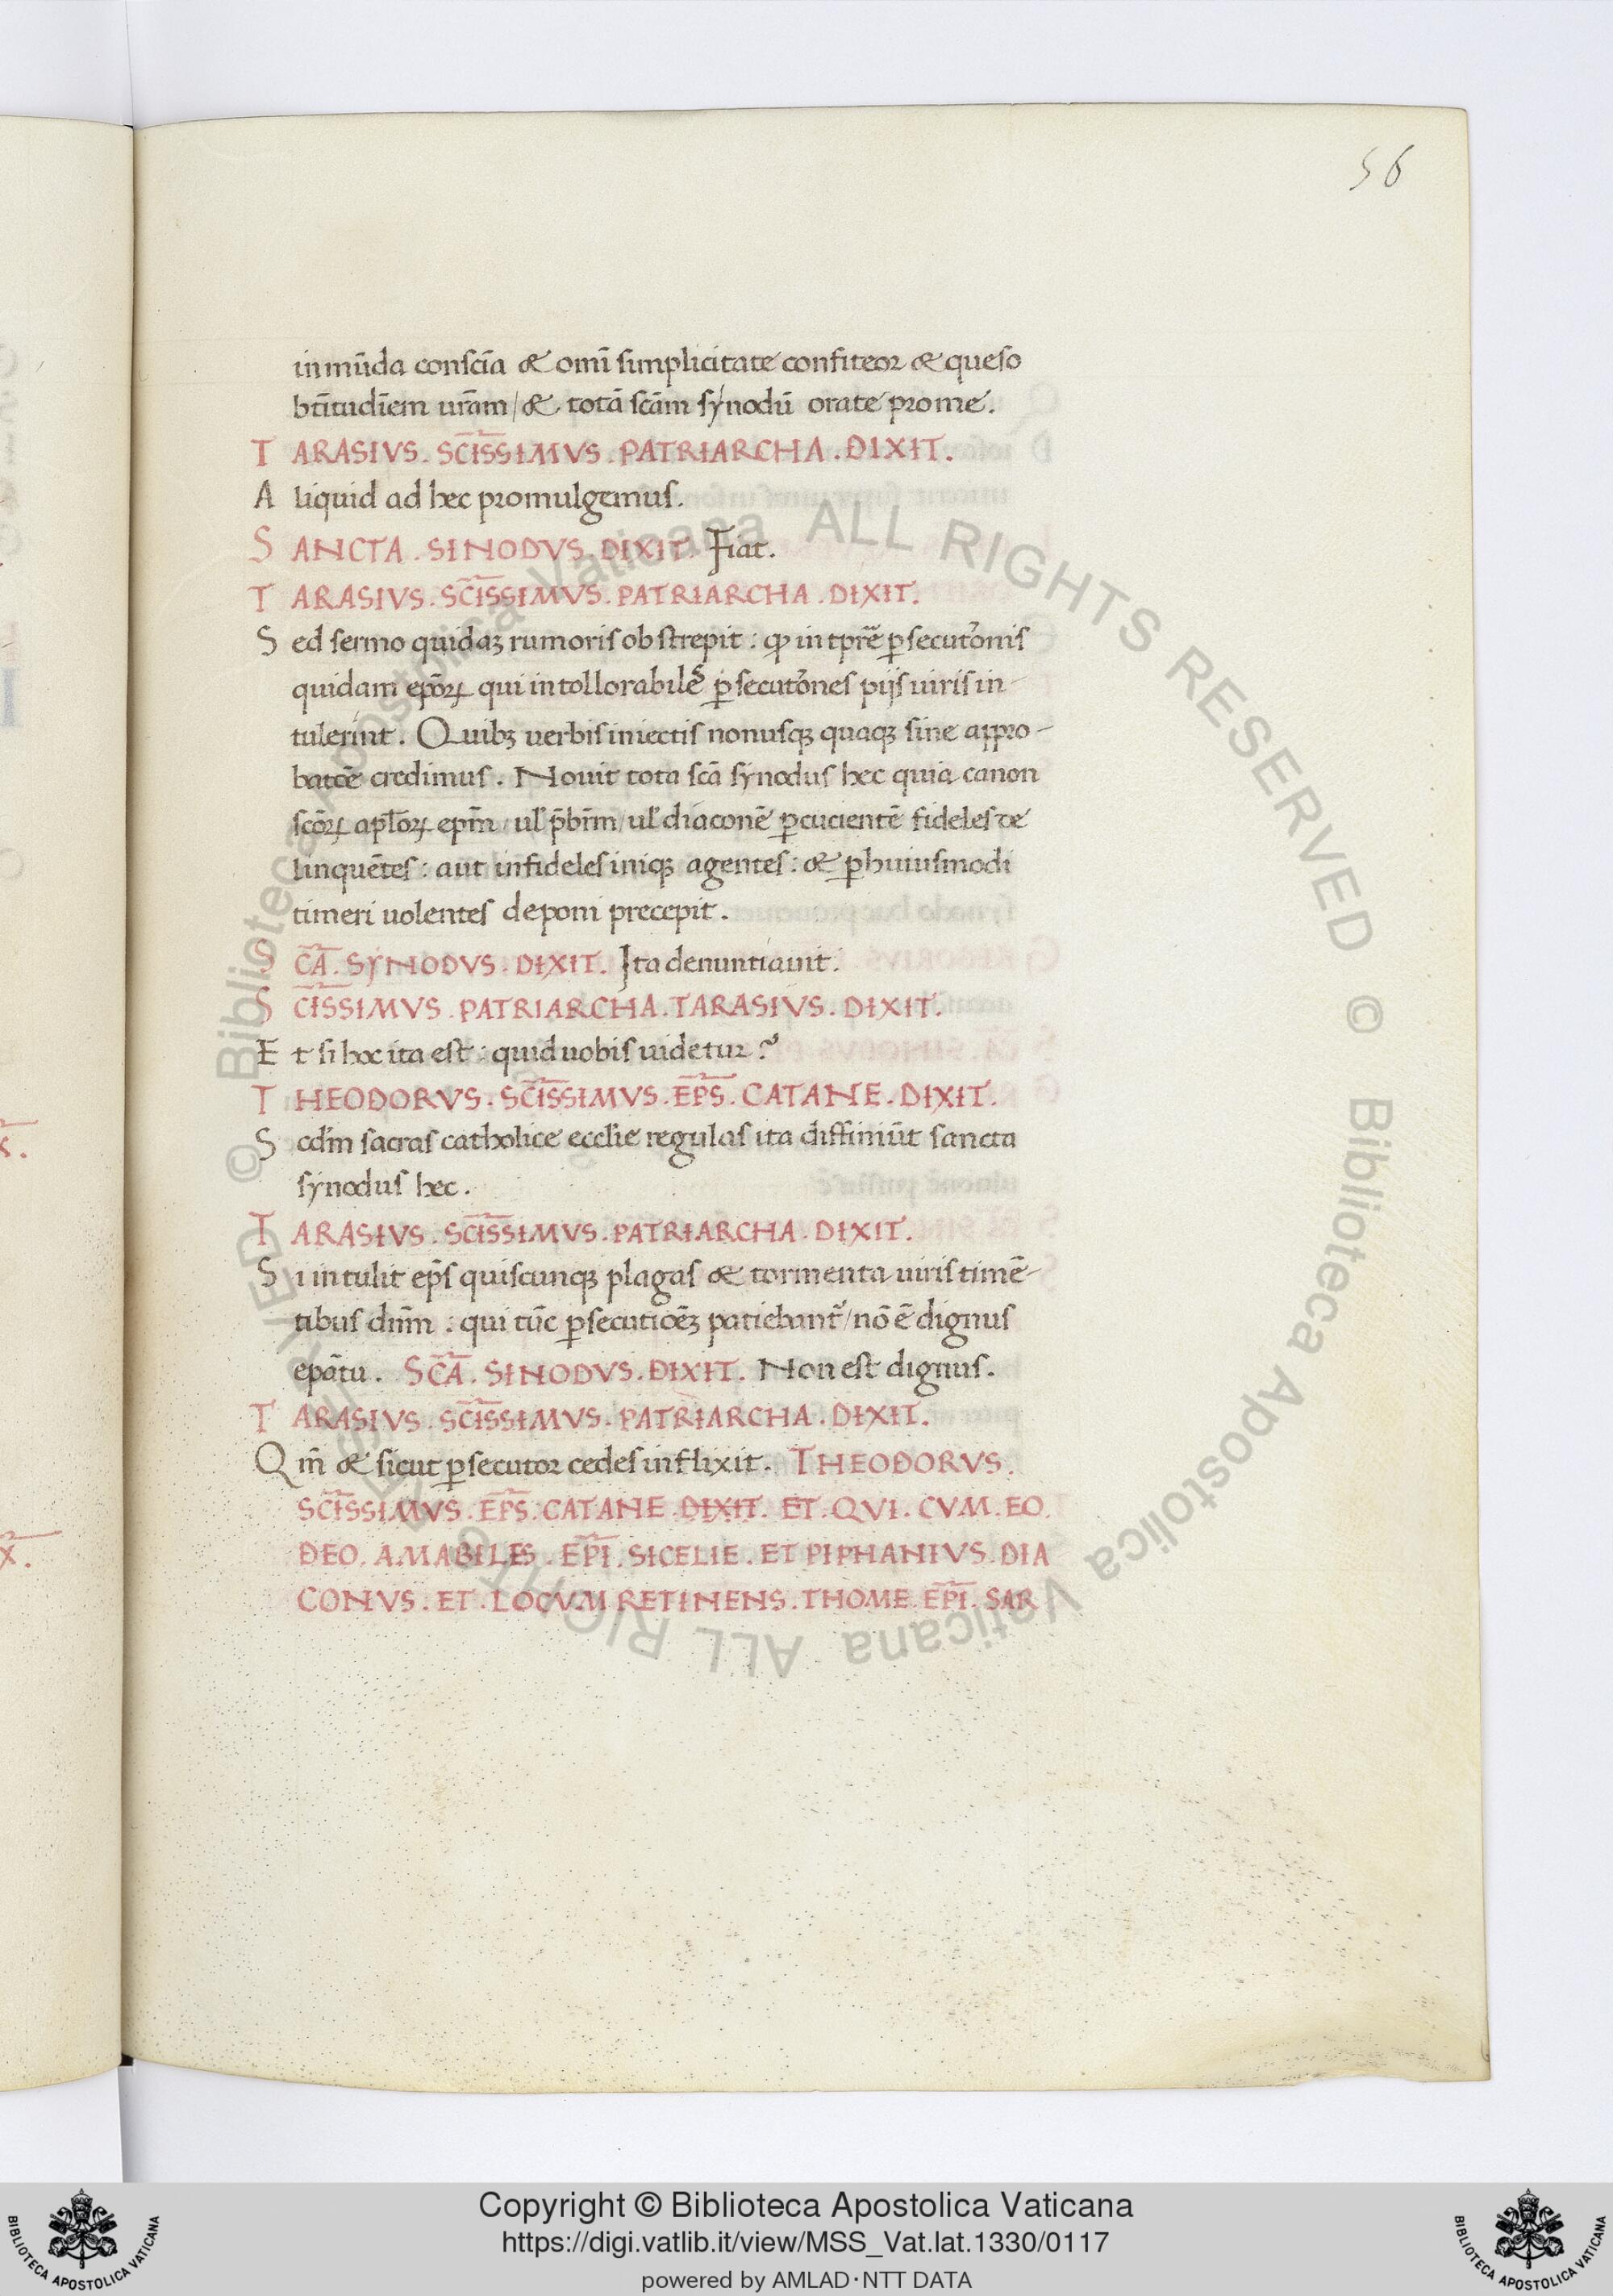 56
in mūda consciā & omī simplicitate confiteor & queso
btītudīem urām / & totā scām synodū orate pro me.
TARASIVS. SC̄ISSIMVS. PATRIARCHA. DIXIT.
Aliquid ad hec promulgemus.
SANCTA. SINODVS. DIXIT. Fiat.
TARASIVS. SC̄ISSIMVS. PATRIARCHA. DIXIT.
Sed sermo quidaꝫ rumoris obstrepit : ꝙ in tprē ꝑsecutōnis
quidam epōꝝ qui intollorabilēs ꝑsecutōnes pijs uiris in-
tulerint. Quibꝫ uerbis iniectis nonusqꝫ quaqꝫ sine appro-
batōe credimus. Nouit tota scā synodus hec quia canon
scōꝝ aplōꝝ epm̄ / ul' p̄brm̄ / ul' diaconē ꝑcucientē fideles de
linquētes : aut infideles iniqꝫ agentes : & ꝑ huiusmodi
timeri uolentes deponi precepit.
SC̄A. SYNODVS. DIXIT. Ita denuntiauit.
SC̄ISSIMVS. PATRIARCHA. TARASIVS. DIXIT.
Et si hoc ita est : quid uobis uidetur ?
THEODORVS. SC̄ISSIMVS. EP̄S. CATANE. DIXIT.
Scdm̄ sacras catholice ecclīe regulas ita diffiniūt sancta
synodus hec.
TARASIVS. SC̄ISSIMVS. PATRIARCHA. DIXIT.
Si intulit ep̄s quiscunqꝫ plagas & tormenta uiris timē-
tibus dūm : qui tūc ꝑsecutioēꝫ patiebant᷑ / nō ē dignus
epātu. SC̄A. SINODVS. DIXIT. Non est dignus.
TARASIVS. SC̄ISSIMVS. PATRIARCHA. DIXIT.
Qm̄ & sicut ꝑsecutor cedes inflixit. THEODORVS.
SC̄ISSIMVS. EP̄S. CATANE. DIXIT. ET. QVI. CVM. EO.
DEO. AMABILES. EP̄I. SICELIE. ET PIPHANIVS. DIA
CONVS. ET. LOCVM RETINENS. THOME. EP̄I. SAR
© Biblioteca Apostolica Vaticana ALL RIGHTS RESERVED © Biblioteca Apostolica Vaticana ALL RIGHTS RESERVED
Copyright © Biblioteca Apostolica Vaticana
https://digi.vatlib.it/view/MSS_Vat.lat.1330/0117
powered by AMLAD·NTT DATA
BIBLIOTECA APOSTOLICA VATICANA
BIBLIOTECA APOSTOLICA VATICANA